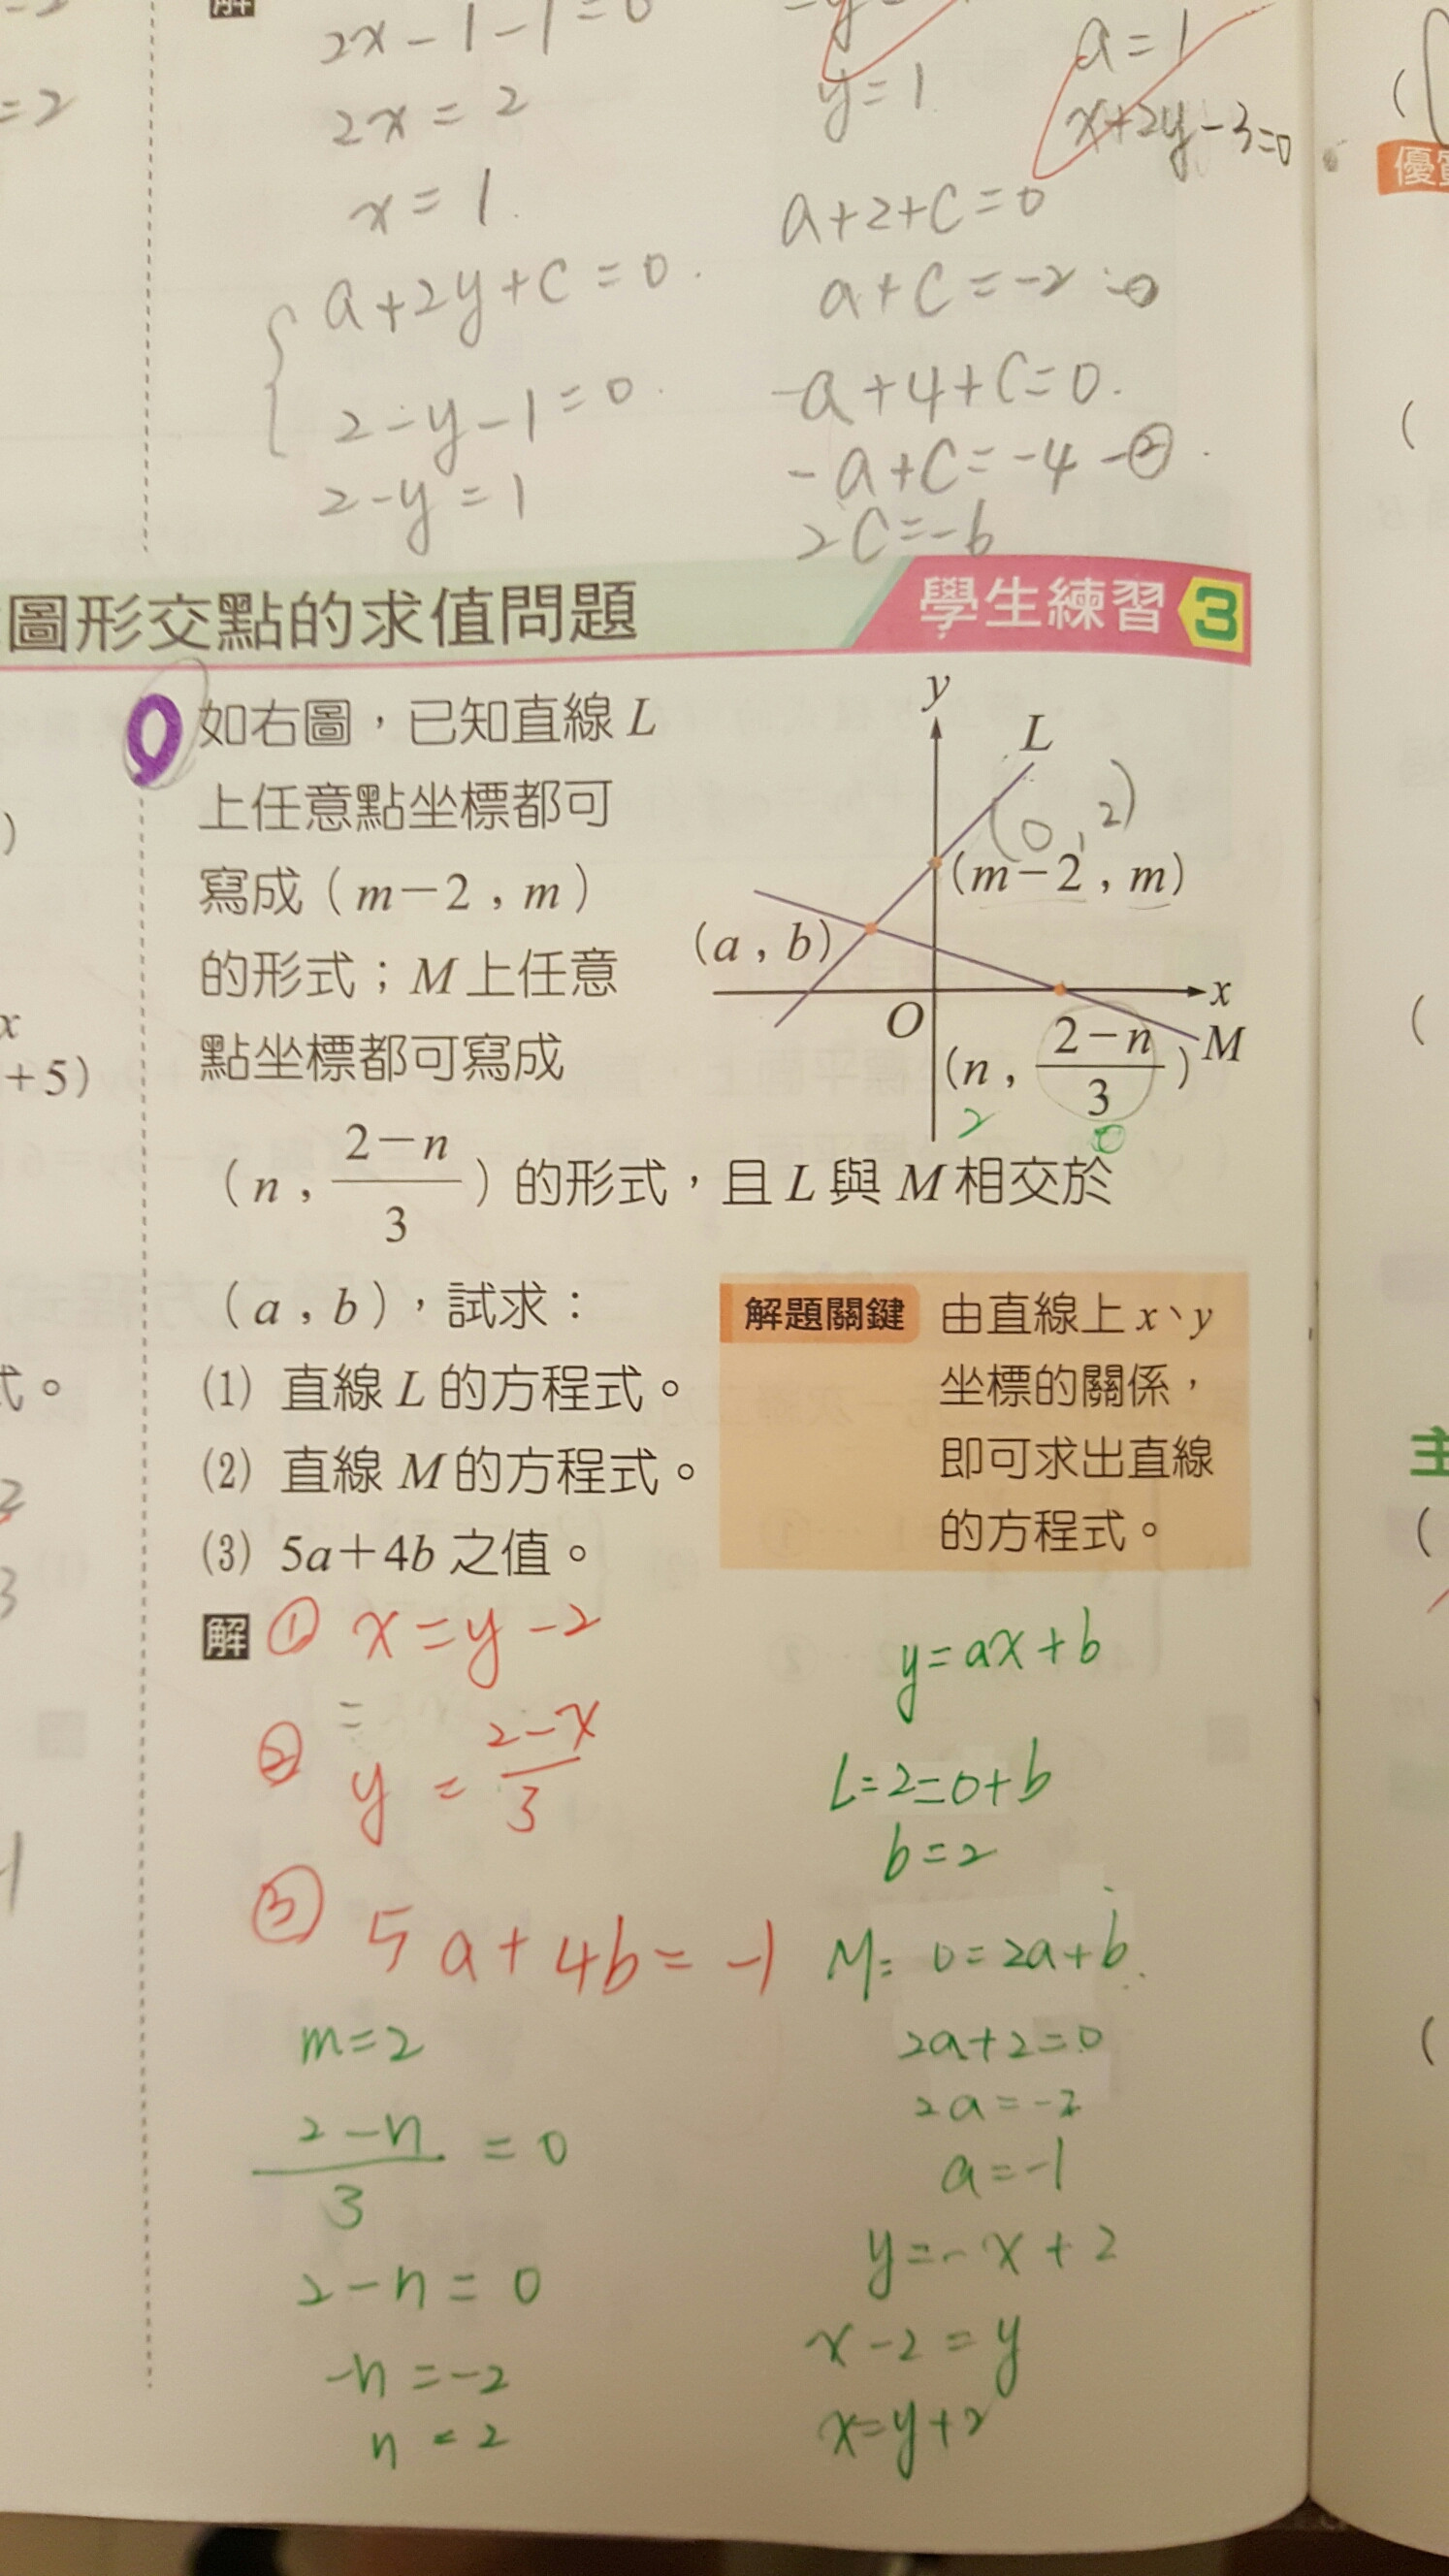 =2
解
2x-1-1=0
2x=2
x=1
a+2y+c=0
2-y-1=0
2-y=1
y=1
a=1
x+2y-3=0
a+2+c=0
a+c=-2-①
-a+4+c=0
-a+c=-4-②
2c=-6
圖形交點的求值問題
學生練習3
如右圖,已知直線L
上任意點坐標都可
寫成(m-2,m)
的形式;M上任意
點坐標都可寫成
(n,\frac{2-n}{3})的形式,且L與M相交於
(a,b),試求:
(1) 直線L的方程式。
(2) 直線M的方程式。
(3) 5a+4b之值。
y
L
(0,2)
(m-2,m)
(a,b)
x
O
M
(n,\frac{2-n}{3})
2
0
解題關鍵
由直線上x、y
坐標的關係,
即可求出直線
的方程式。
解
① x=y-2
② y=\frac{2-x}{3}
③ 5a+4b=-1
m=2
\frac{2-n}{3}=0
2-n=0
-n=-2
n=2
y=ax+b
L=2=0+b
b=2
M=0=2a+b
2a+2=0
2a=-2
a=-1
y=-x+2
x-2=y
x=y+2
)
x
+5)
式。
3
優
主